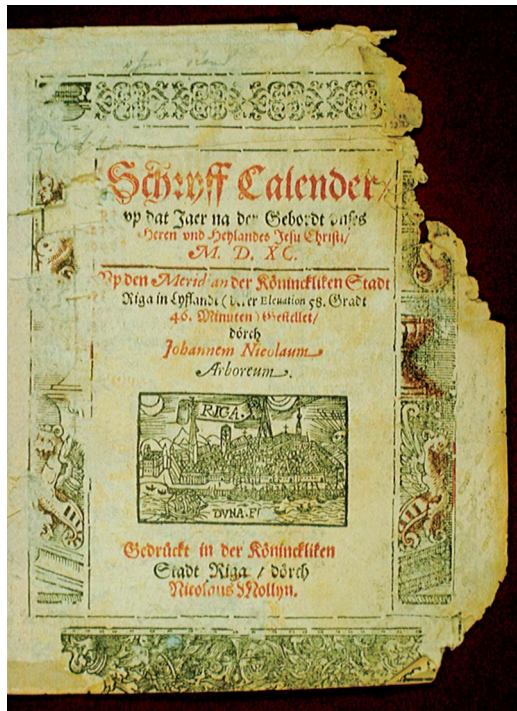 Schryff Calender/
vp dat Jaer na der Gebordt vnses
Heren vnd Heylandes Jesu Christi/
M. D. XC.
Vp den Meridian der Köninckliken Stadt
Riga in Lyffandt (Elevation 58. Gradt
46. Minuten) Gestellet/
dörch
Johannem Nicolaum
Arboreum.
RIGA.
DVNA. F.
Gedrückt in der Köninckliken
Stadt Riga / dörch
Nicolaus Mollyn.